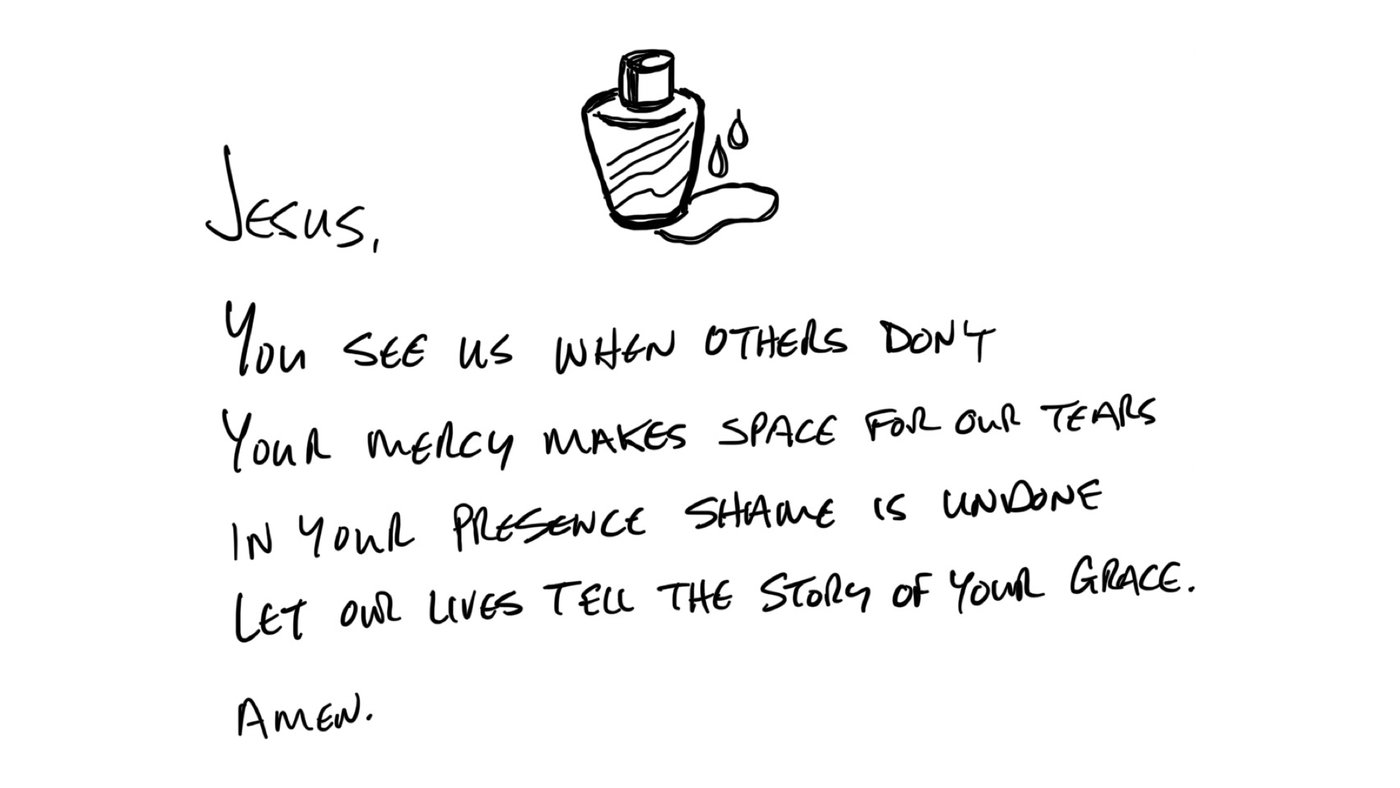 JESUS,
YOU SEE US WHEN OTHERS DON'T
YOUR MERCY MAKES SPACE FOR OUR TEARS
IN YOUR PRESENCE SHAME IS UNDONE
LET OUR LIVES TELL THE STORY OF YOUR GRACE.
AMEN.